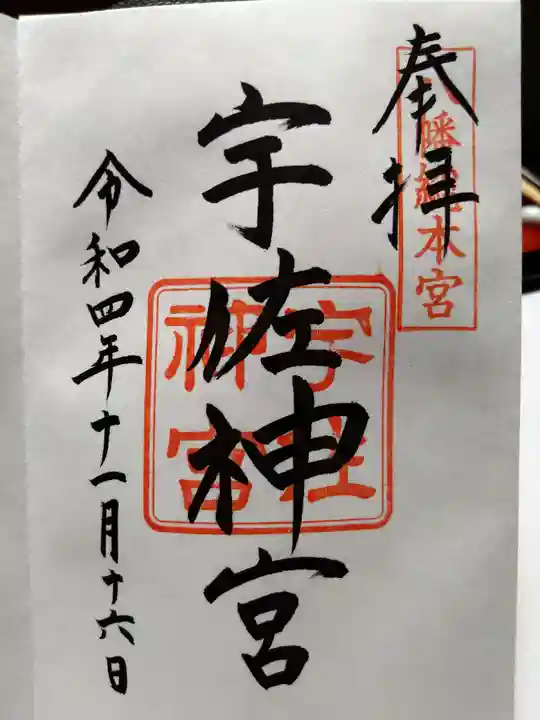 奉拝
八幡総本宮
宇佐神宮
宇佐神宮
令和四年十一月十六日